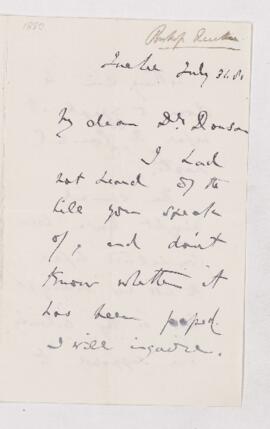 1880
Bishop
July 31. 80
My dear Dr. Dawson
I had
not heard of the
bill you speak
of, and don't
know whether it
has been passed.
I will inquire.